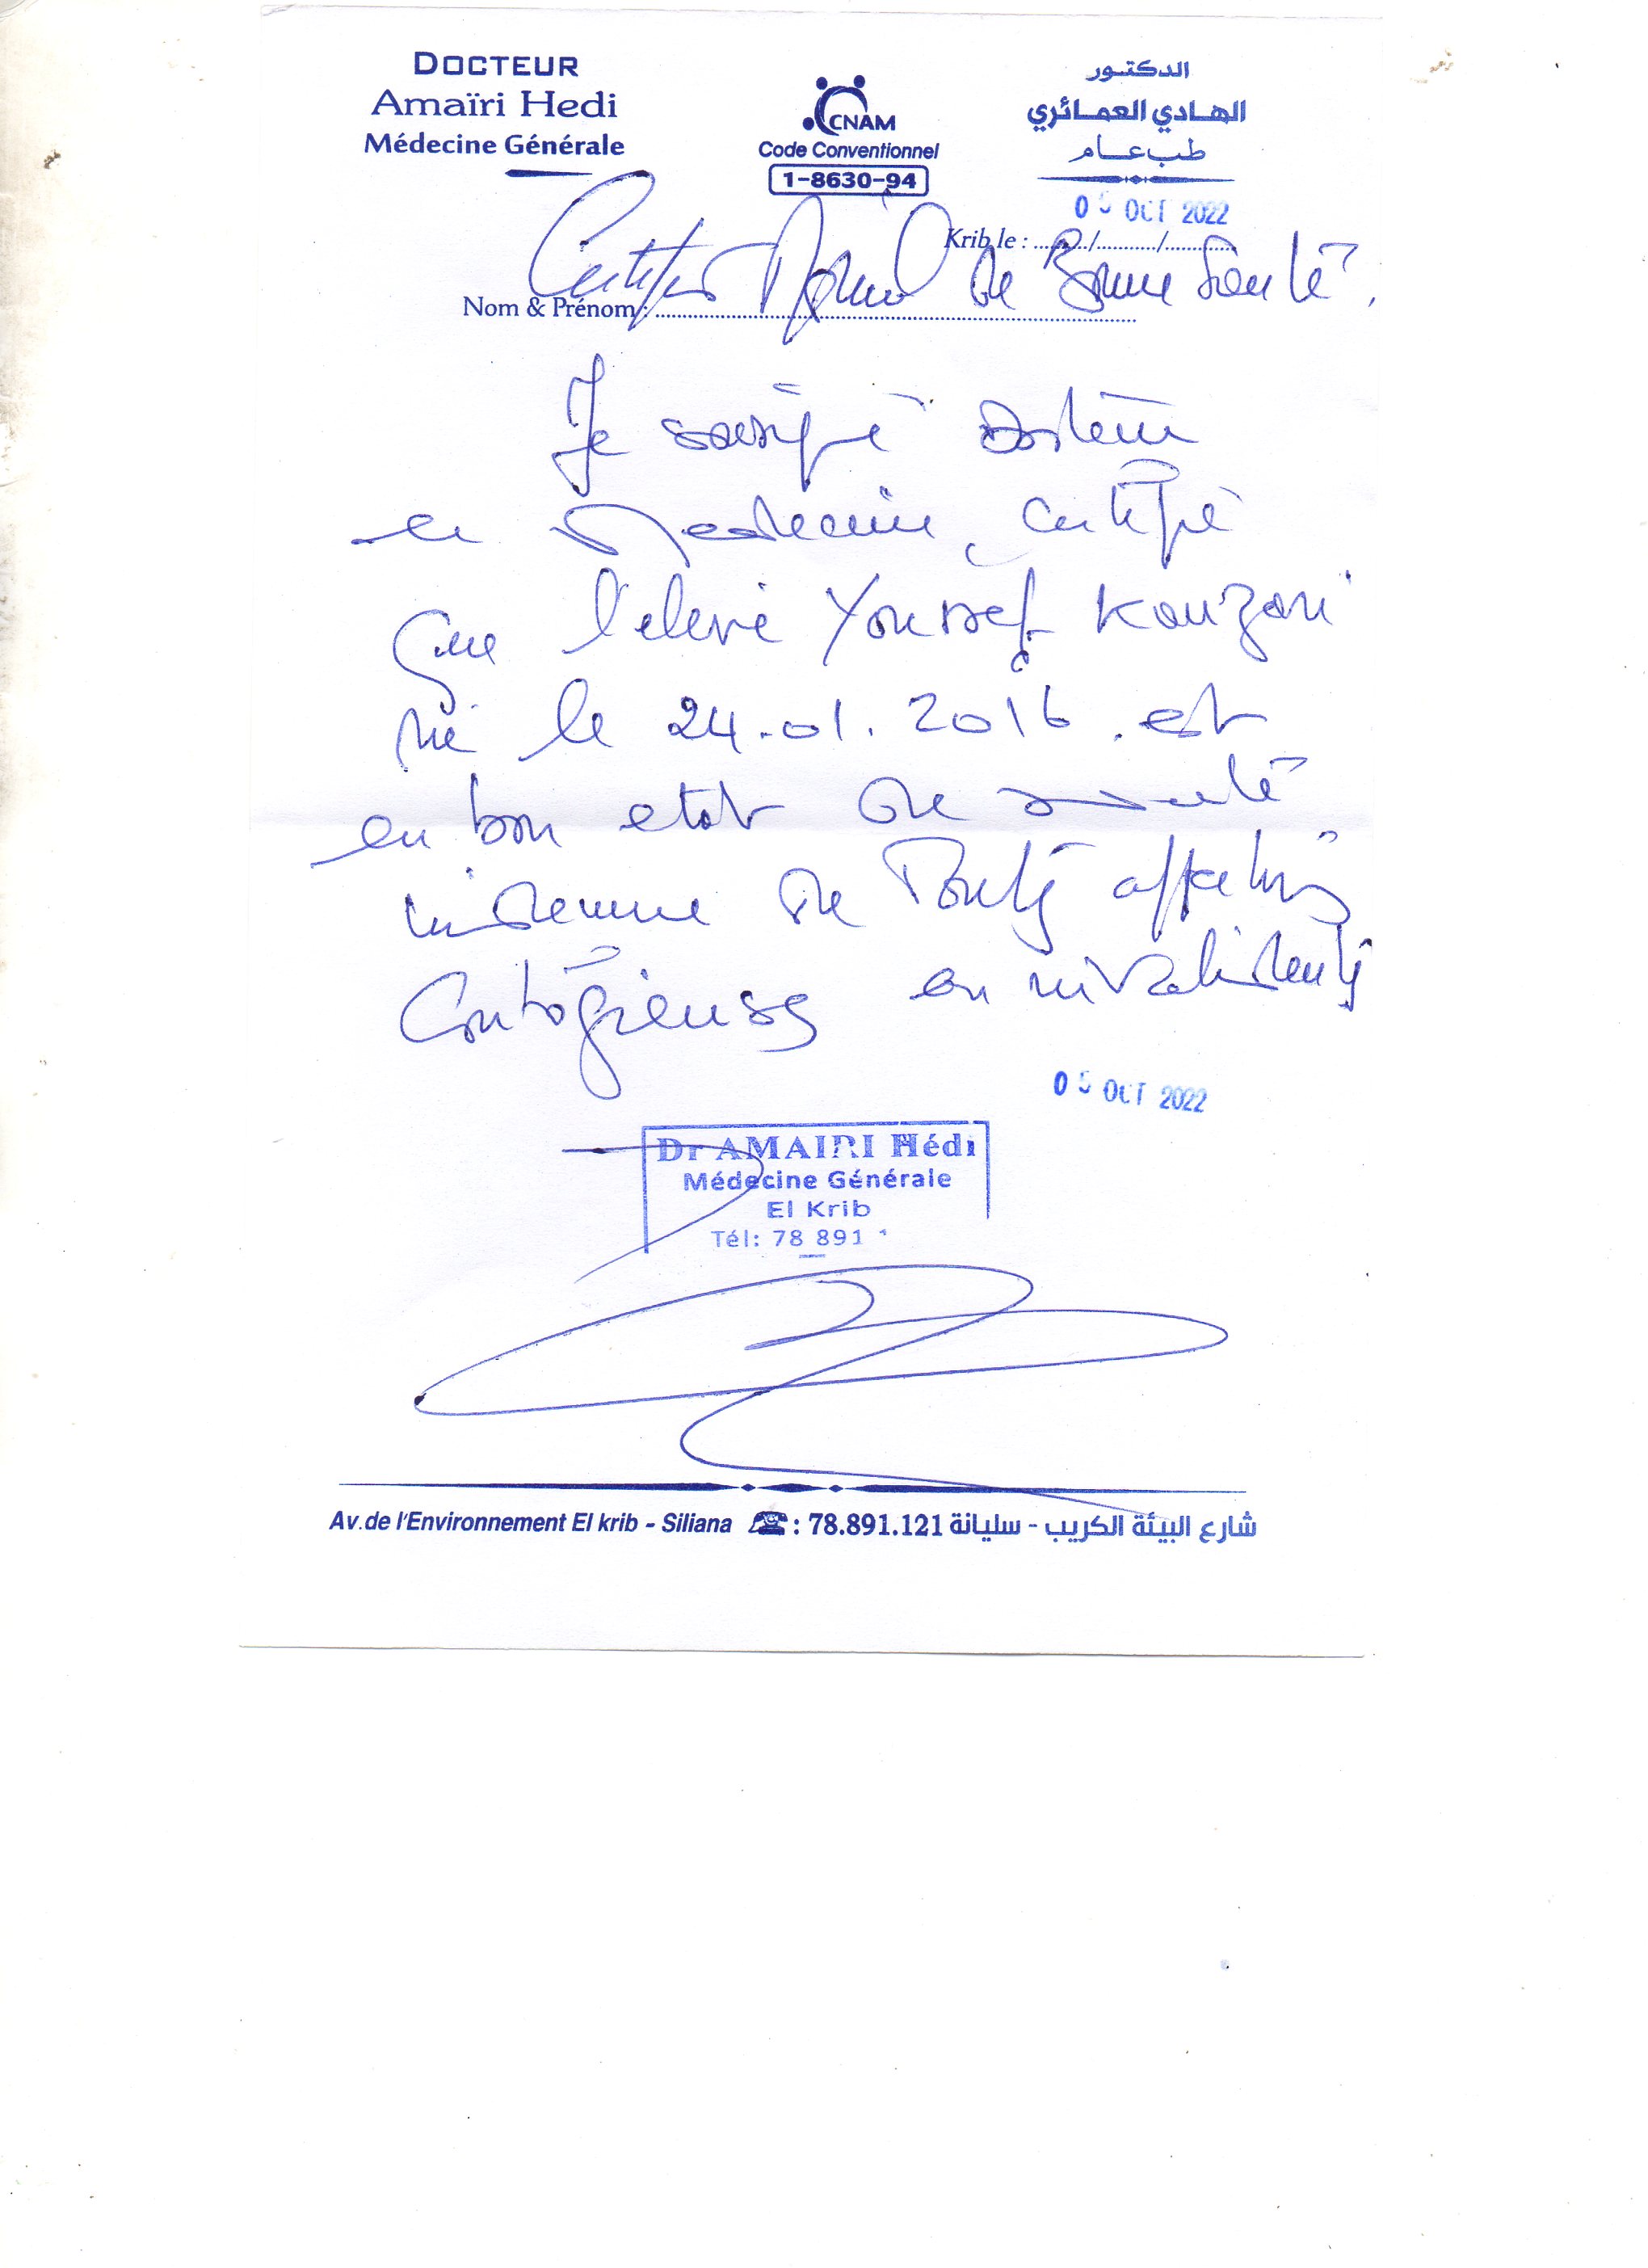 DOCTEUR
Amaïri Hedi
Médecine Générale
CNAM
Code Conventionnel
1-8630-94
الدكتور
الهادي العمائري
طب عام
05 OCT 2022
Krib le : ......../........../............
Nom & Prénom :
Certificat Médical de Bonne Santé.
Je soussigné Docteur
en Medecine, certifie
que l'eleve Youssef Kouzani
né le 24.01.2016 est
en bon etat de santé
indemne de toutes affections
contagieuses en
05 OCT 2022
Dr AMAIRI Hédi
Médecine Générale
El Krib
Tél: 78 891 1
Av.de l'Environnement El krib - Siliana ☎ : 78.891.121 شارع البيئة الكريب - سليانة